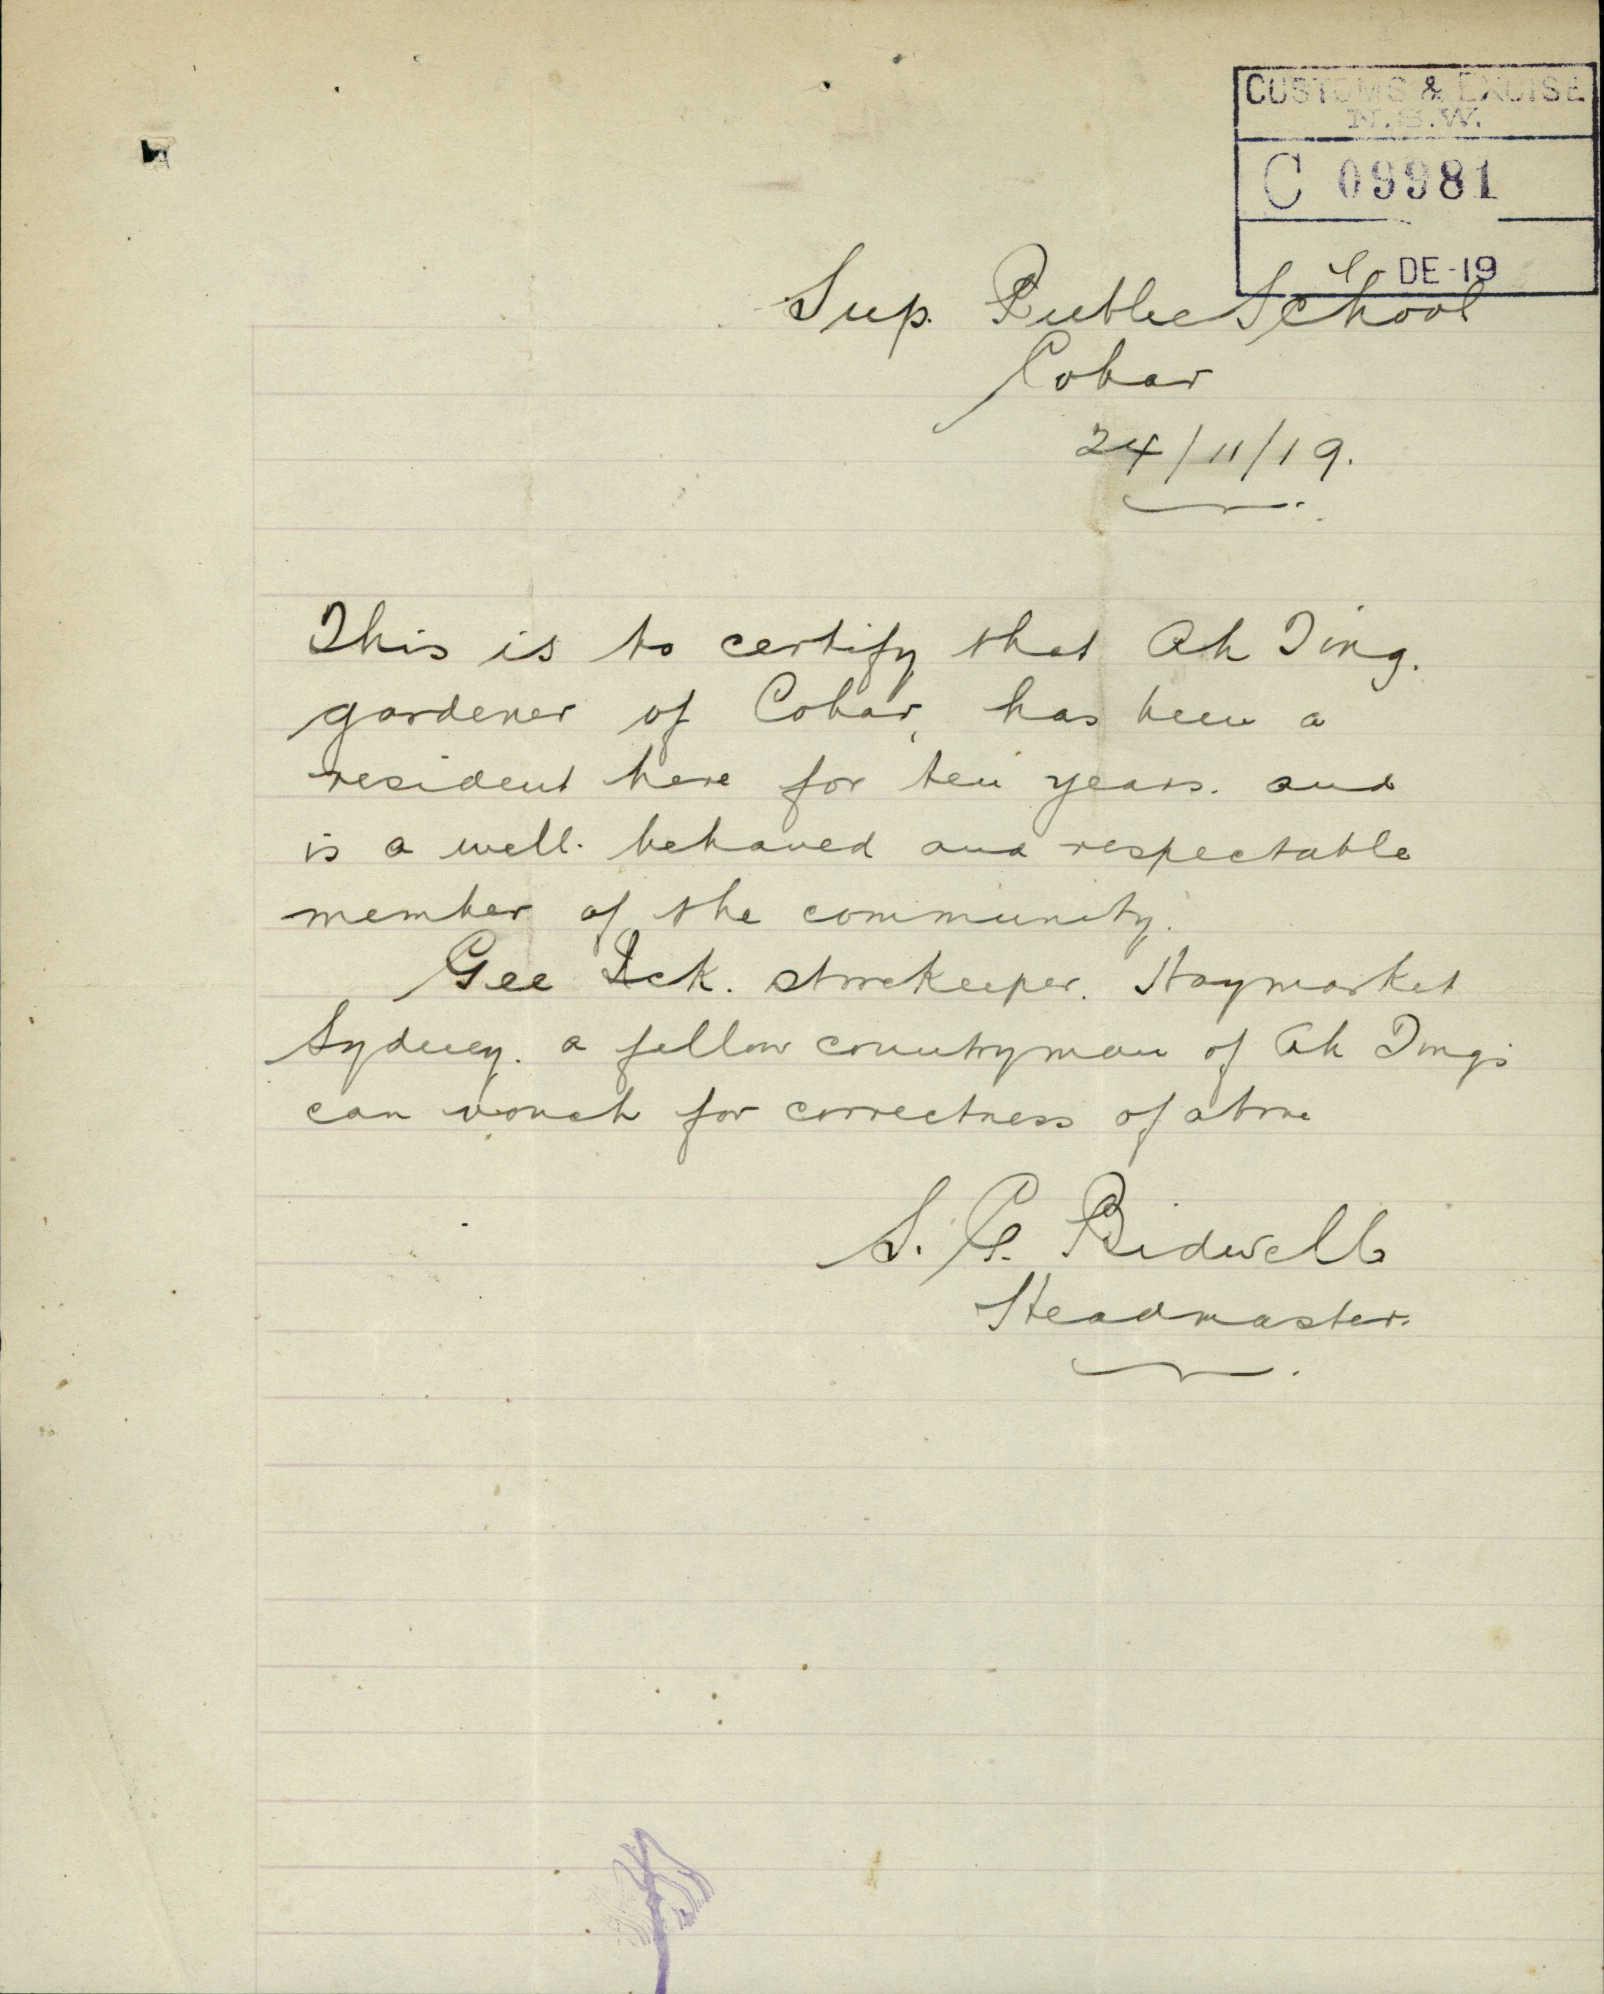 CUSTOMS & EXCISE
N.S.W.
C 09981
DE -19
Sup. Public School
Cobar
24/11/19.
This is to certify that Ah Ting.
gardener of Cobar, has been a
resident here for ten years. and
is a well. behaved and respectable
member of the community.
Gee Ick. storekeeper. Haymarket
Sydney. a fellow countryman of Ah Ting's
can vouch for correctness of above
S. C. Bidwell
Headmaster.